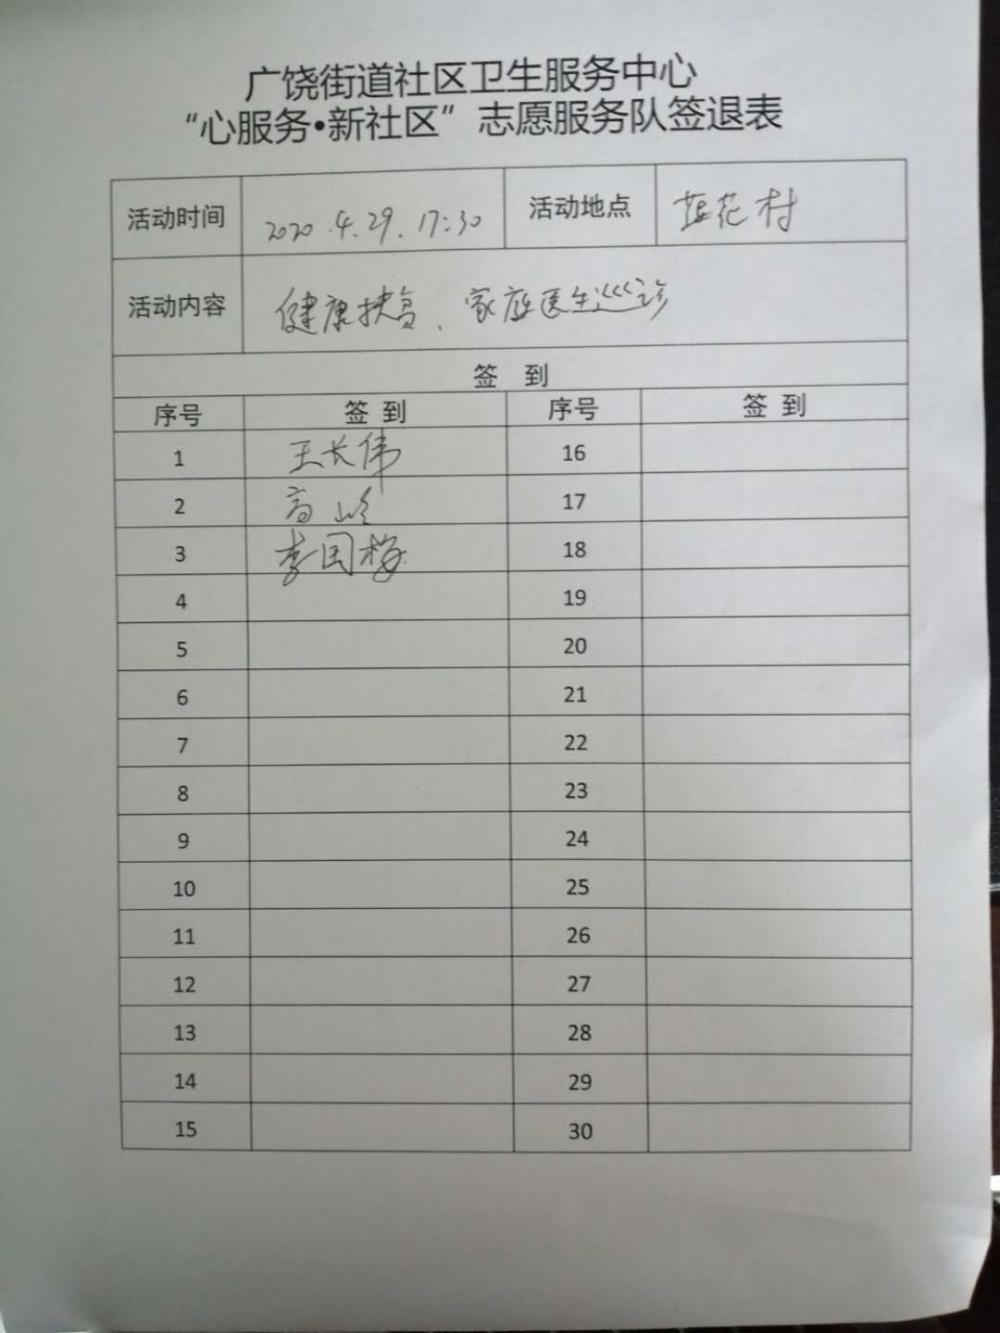 广饶街道社区卫生服务中心
“心服务•新社区”志愿服务队签退表
活动时间 2020.4.29.17:30 活动地点 花村
活动内容 健康扶贫、家庭医生巡诊
签 到
序号 签 到 序号 签 到
1 王长伟 16
2 高岭 17
3 李国梅 18
4 19
5 20
6 21
7 22
8 23
9 24
10 25
11 26
12 27
13 28
14 29
15 30